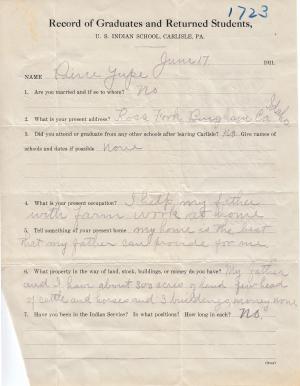 1723
Record of Graduates and Returned Students,
U. S. INDIAN SCHOOL, CARLISLE, PA.
June 17 1911.
NAME Pierce Yupe
1. Are you married and if so to whom? No
2. What is your present address? Ross Fork Bingham Co. Idaho
3. Did you attend or graduate from any other schools after leaving Carlisle? No. Give names
of schools and dates if possible none
4. What is your present occupation? I help my father
with farm work at home
5. Tell something of your present home my home is the best
that my father can provide for me
6. What property in the way of land, stock, buildings, or money do you have? My father
and I have about 300 acres of land few head
of cattle and horses and 3 buildings, money none
7. Have you been in the Indian Service? In what positions? How long in each? No.
(Over)